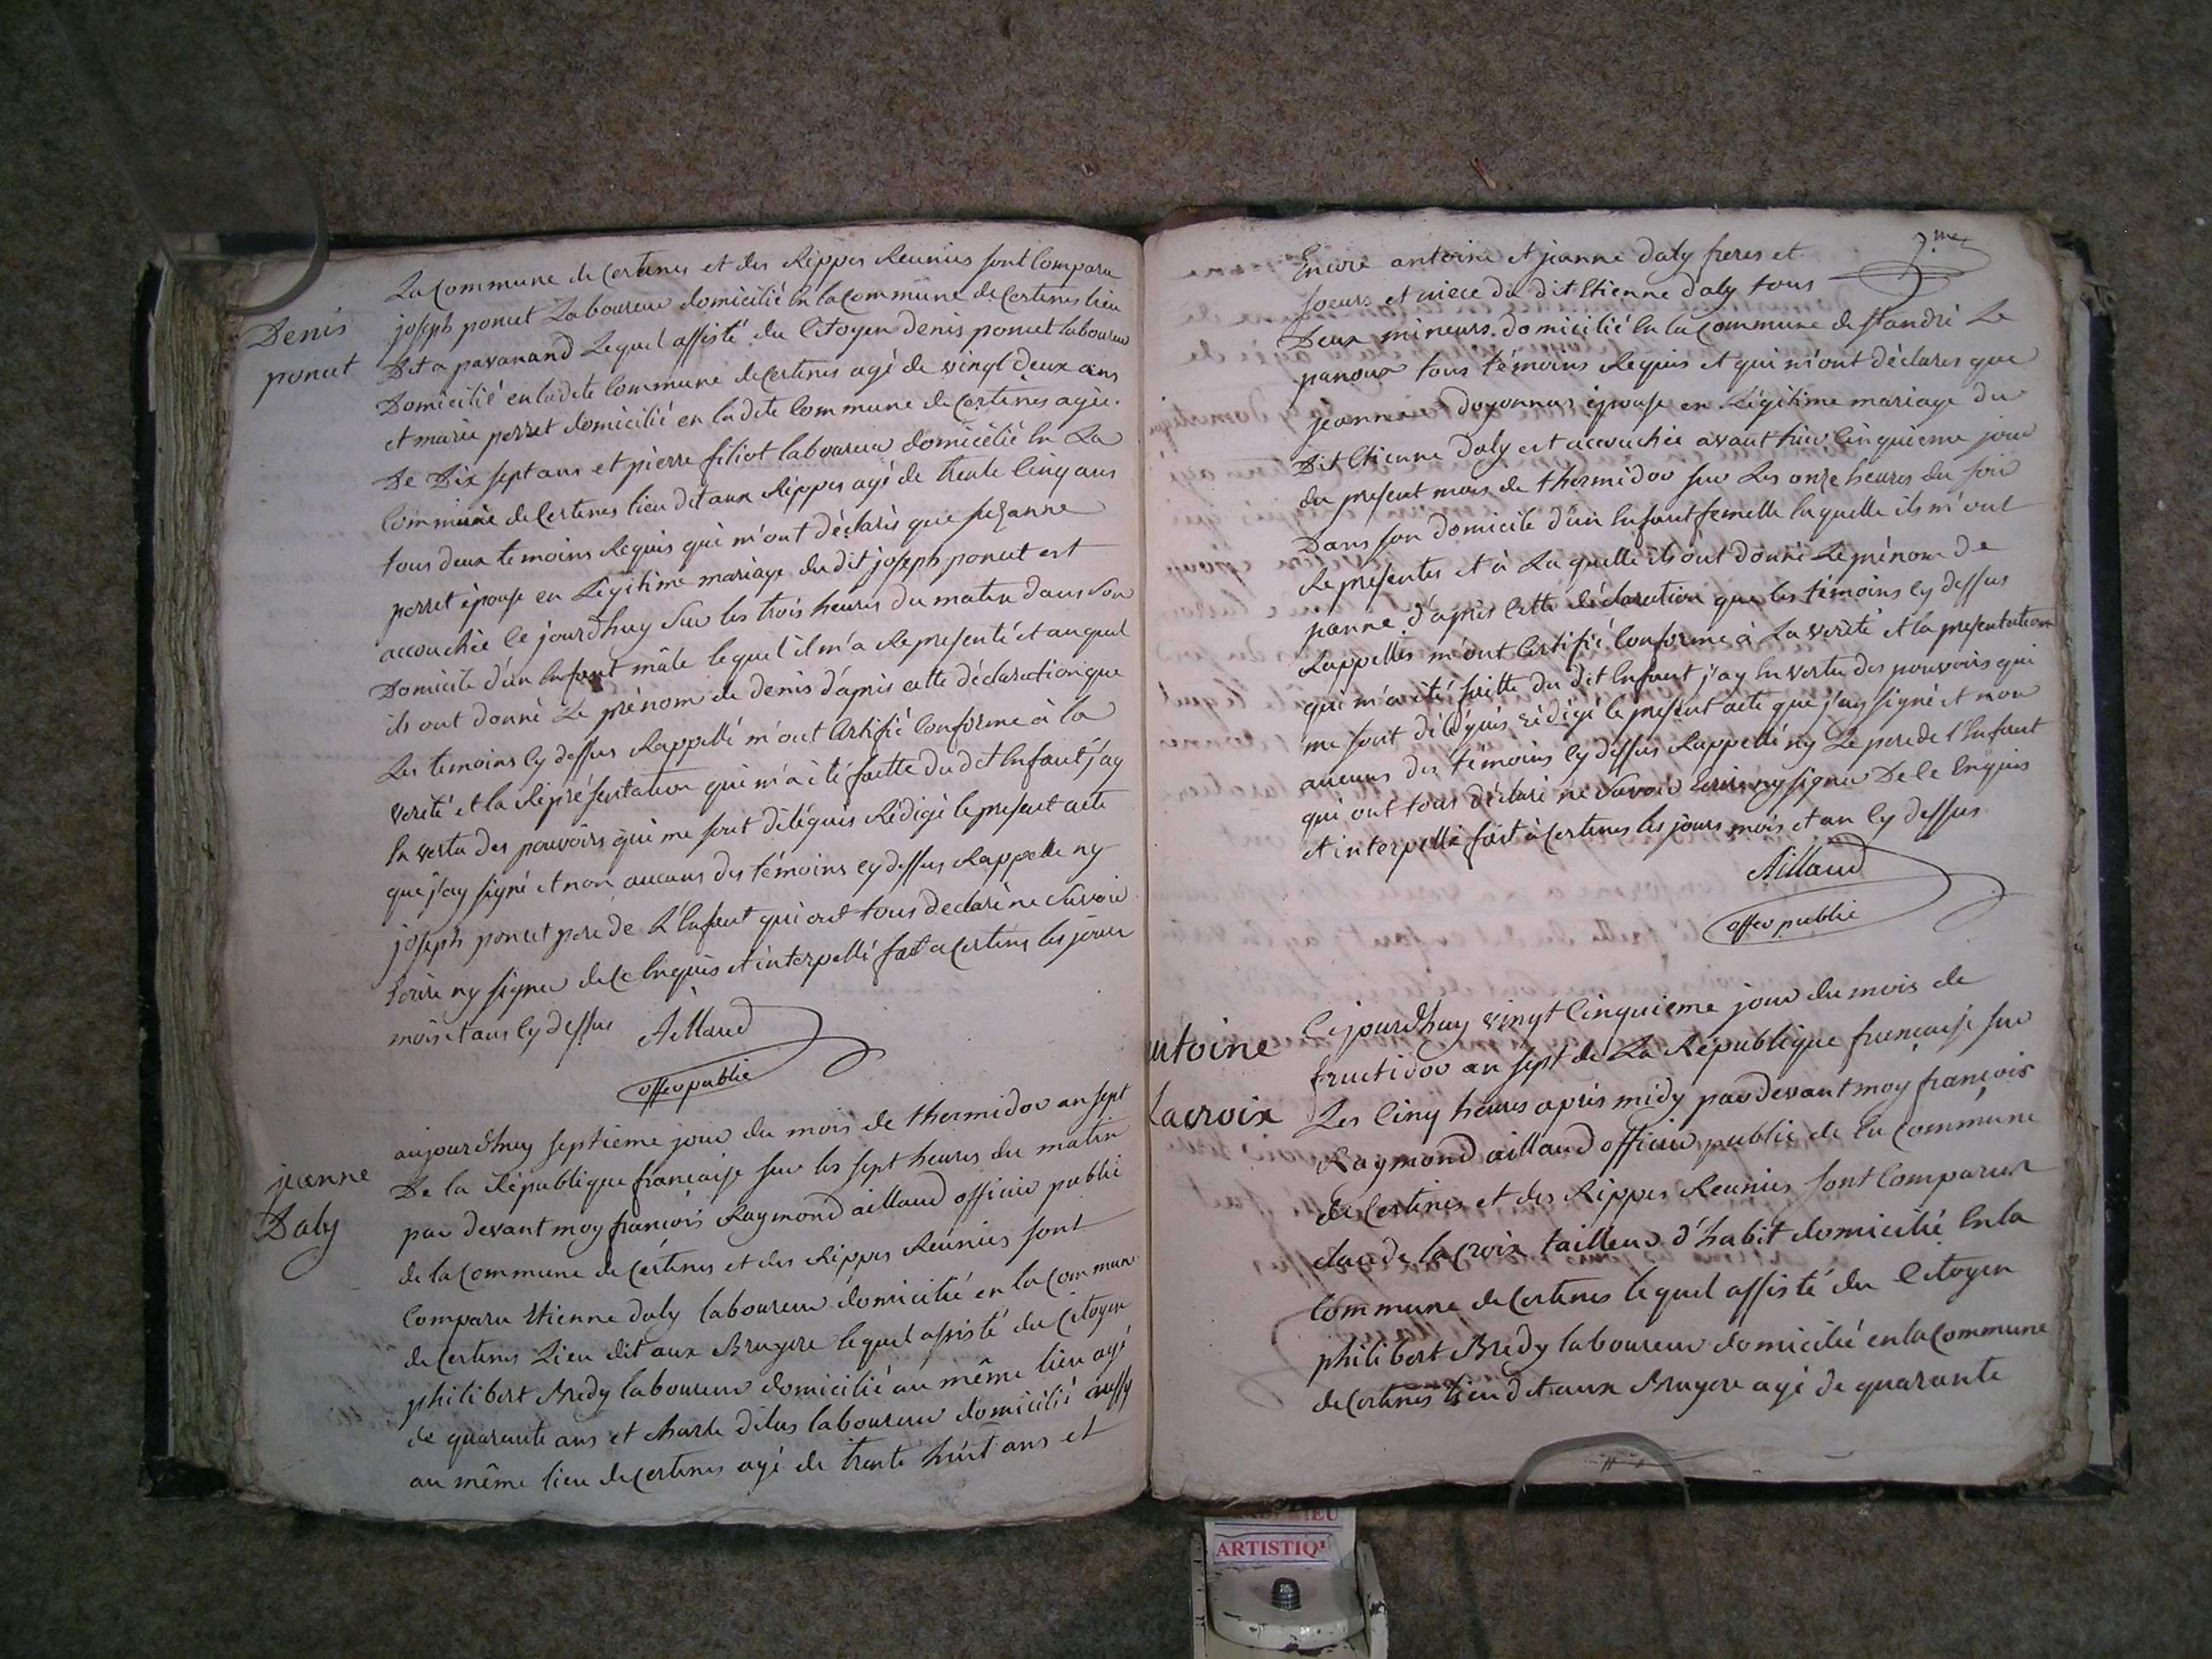 La Commune de Certines et des Rippes Reunies sont Comparu
Denis
poncet
joseph poncet Laboureur domicilié En la Commune de Certines lieu
Dit a pavanand Lequel assisté du Citoyen denis poncet laboureur
Domicilié en ladite Commune de Certines agé de vingt deux ans
et marie perret domicilié en ladite Commune de Certines agée
De Dix sept ans et pierre filiot laboureur domicilié En La
Commune de Certines lieu dit aux Rippes agé de trente Cinq ans
tous deux temoins Requis qui m'ont déclarés que suzanne
perret épouse en Légitime mariage du dit joseph poncet est
accouchée Ce jourdhuy Sur les trois heures du matin dans Son
Domicile d'un Enfant mâle lequel il m'a Représenté et auquel
ils ont donné Le prénom de denis d'apres cette déclaration que
Les temoins Cy dessus Rappellé m'ont Certifié Conforme à la
verité et la Représentation qui m'a été faitte du dit Enfant j'ay
En vertu des pouvoirs qui me sont délégués Rédigé le present acte
que j'ay signé et non aucuns des témoins cy dessus Rappelle ny
joseph poncet pere de L'Enfant qui ont tous declaré ne Savoir
Ecrire ny signer de Ce Enquis et interpellé fait a Certines les jours
mois et ans Cy dessus Aillaud
offer public
jeanne
Daly
aujourdhuy septieme jour du mois de thermidor an sept
De la République francaise sur les sept heures du matin
par devant moy francois Raymond aillaud officier public
de la Commune de Certines et des Rippes Reunies sont
Comparu Etienne daly laboureur domicilié en la Commune
de Certines Lieu dit aux Bruyere lequel assisté du Citoyen
philibert Bredy laboureur domicilié au même lieu agé
de quarante ans et Charle dilas laboureur domicilié aussy
au même lieu de Certines agé de trente huit ans et
7.me
Encore antoine et jeanne daly freres et
soeurs et niece du dit Etienne daly tous
Deux mineurs domicilié En la Commune de St andré Le
panoux tous témoins Requis et qui m'ont déclarés que
jeanne doyonnas épouse en Légitime mariage du
Dit Etienne daly est accouchée avant hier Cinquieme jour
du present mois de thermidor sur Les onze heures du soir
Dans son domicile d'un Enfant femelle laquelle ils m'ont
Représentés et à Laquelle ils ont donné Le prénom de
jeanne d'apres Cette déclaration que les témoins Cy dessus
Rappellés m'ont Certifié Conforme à La verité et la presentation
qui m'a été faitte du dit Enfant j'ay En vertu des pouvoirs qui
me sont délégués rédigé le present acte que j'ay signé et non
aucuns des témoins Cy dessus Rappellé ny Le pere de l'Enfant
qui ont tous déclaré ne Savoir Ecrire ny signer De Ce Enquis
et interpellé fait à Certines les jours mois et an Cy dessus
Aillaud
offer public
ntoine
Lacroix
Ce jourdhuy vingt Cinquieme jour du mois de
fructidor an sept de La République francaise sur
Les Cinq heures après midy par devant moy françois
Raymond aillaud officier public de la Commune
de Certines et des Rippes Reunies sont Comparus
claude lacroix tailleur d'habit domicilié En la
Commune de Certines lequel assisté du Citoyen
philibert Bredy laboureur domicilié en la Commune
de Certines lieu dit aux Bruyere agé de quarante
ARTISTIQ